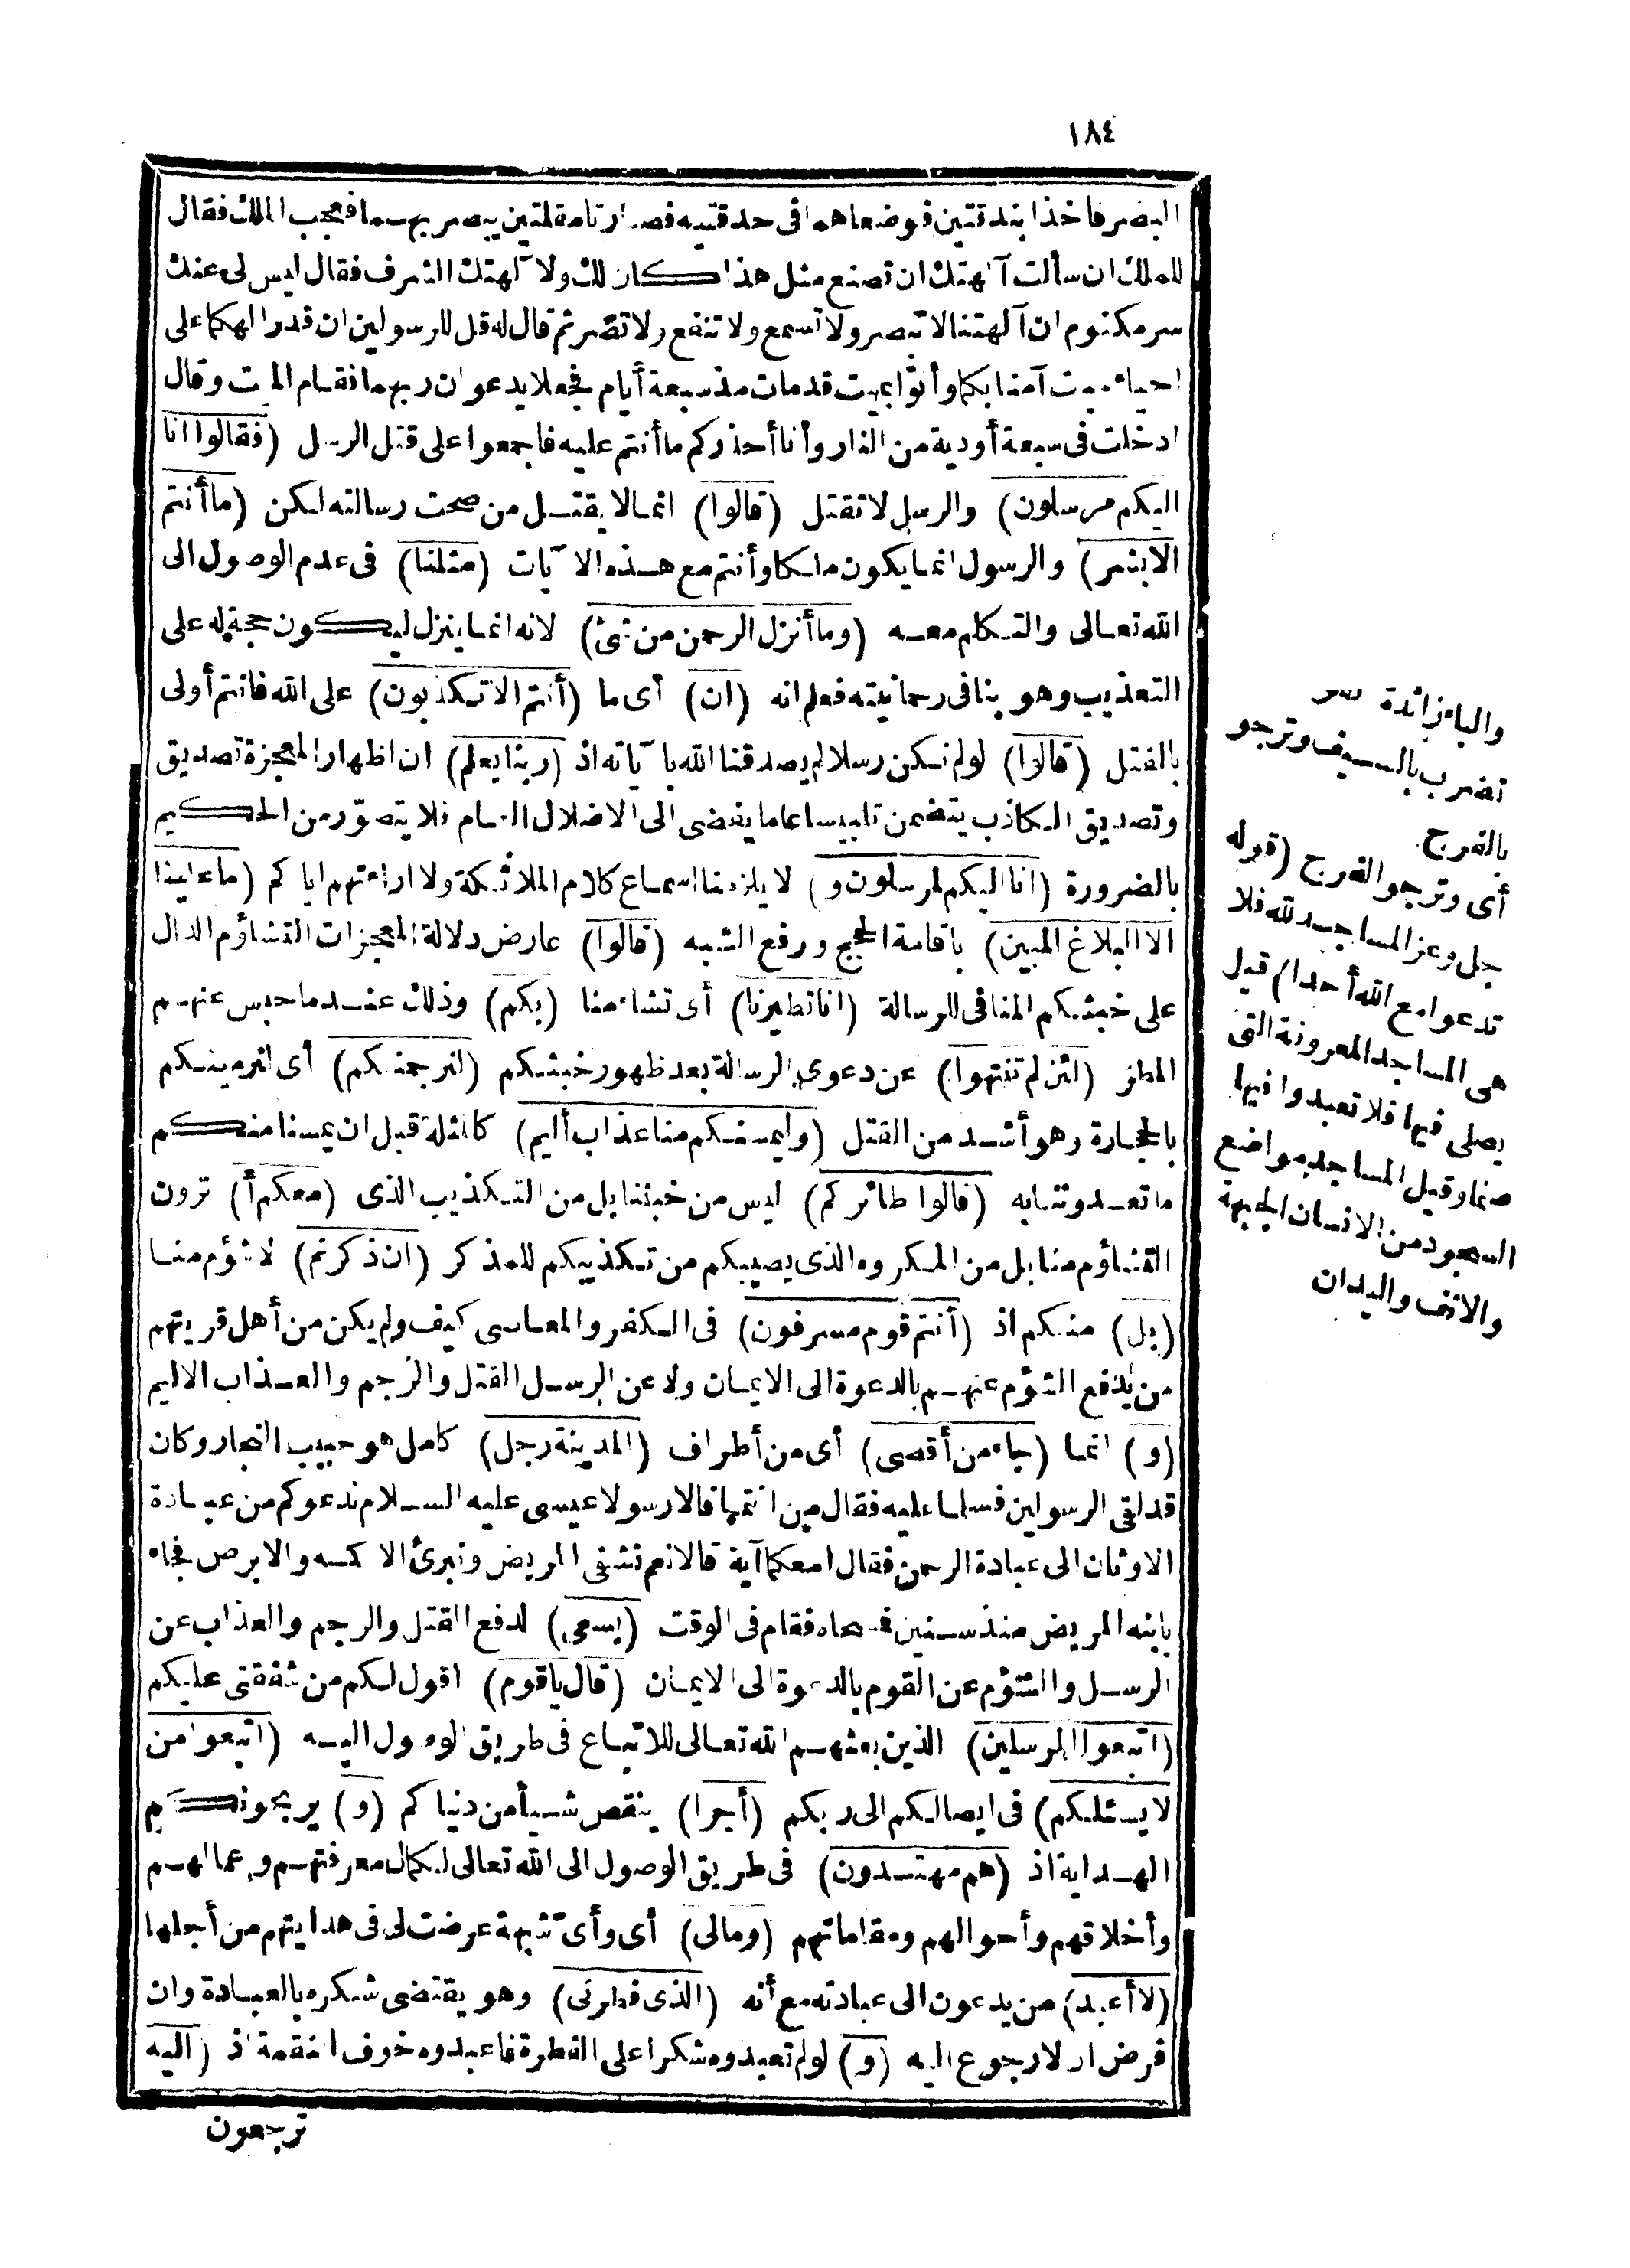 ١٨٤
البصر فاخذا بندقتين فوضعاهما فى حدقتيه فصارتا مقلتين يبصر بهما فعجب الملك فقال
للملك ان سألت آلهتك ان تصنع مثل هذا كان لك ولآلهتك الشرف فقال ليس لى عنك
سر مكتوم ان آلهتنا لا تبصر ولا تسمع ولا تنفع ولا تضر ثم قال له قل للرسولين ان قدر الهكما على
احياء ميت آمنا بكما وأتوا بميت قد مات مذ سبعة أيام فجعلا يدعوان ربهما فقام الميت وقال
ادخلت فى سبعة أودية من النار وأنا أحذركم ما أنتم عليه فاجمعوا على قتل الرسل (فقالوا انا
اليكم مرسلون) والرسل لا تقتل (قالوا) انما لا يقتل من صحت رسالته لكن (ما أنتم
الا بشر) والرسول انما يكون ملكا وأنتم مع هذه الآيات (مثلنا) فى عدم الوصول الى
الله تعالى والتكلم معه (وما أنزل الرحمن من شئ) لانه انما ينزل ليكون حجة له على
التعذيب وهو ينافى رحمانيته فعلم انه (ان) أى ما (أنتم الا تكذبون) على الله فانتم أولى
بالقتل (قالوا) لو لم نكن رسلا لم يصدقنا الله بآياته اذ (ربنا يعلم) ان اظهار المعجزة تصديق
وتصديق الكاذب يتضمن تلبيسا عاما يفضى الى الاضلال العام فلا يتصوّر من الحكيم
بالضرورة (انا اليكم لمرسلون و) لا يلزمنا اسماع كلام الملائكة ولا اراءتهم اياكم (ما علينا
الا البلاغ المبين) باقامة الحجج ورفع الشبه (قالوا) عارض دلالة المعجزات التشاؤم الدال
على خبثكم المنافى للرسالة (انا تطيرنا) أى تشاءمنا (بكم) وذلك عند ما حبس عنهم
المطر (لئن لم تنتهوا) عن دعوى الرسالة بعد ظهور خبثكم (لنرجمنكم) أى لنرمينكم
بالحجارة وهو أشد من القتل (وليمسنكم منا عذاب أليم) كالمثلة قبل ان يمسنا منكم
ما تعدوننا به (قالوا طائركم) ليس من خبثنا بل من التكذيب الذى (معكم أ) ترون
التشاؤم منا بل من المكروه الذى يصيبكم من تكذيبكم للمذكر (ان ذكرتم) لا شؤم منا
(بل) منكم اذ (أنتم قوم مسرفون) فى الكفر والمعاصى كيف ولم يكن من أهل قريتهم
من يدفع الشؤم عنهم بالدعوة الى الايمان ولا عن الرسل القتل والرجم والعذاب الاليم
(و) انما (جاء من أقصى) أى من أطراف (المدينة رجل) كامل هو حبيب النجار وكان
قد لقى الرسولين فسلما عليه فقال من انتما قالا رسولا عيسى عليه السلام ندعوكم من عبادة
الاوثان الى عبادة الرحمن فقال امعكما آية قالا نعم نشفى المريض ونبرئ الاكمه والابرص فجاء
بابنه المريض منذ سنين فمسحاه فقام فى الوقت (يسعى) لدفع القتل والرجم والعذاب عن
الرسل والشؤم عن القوم بالدعوة الى الايمان (قال يا قوم) اقول لكم من شفقتى عليكم
(اتبعوا المرسلين) الذين بعثهم الله تعالى للاتباع فى طريق الوصول اليه (اتبعوا من
لا يسئلكم) فى ايصالكم الى ربكم (أجرا) ينقص شيأ من دنياكم (و) يربحونكم
الهداية اذ (هم مهتدون) فى طريق الوصول الى الله تعالى لكمال معرفتهم وعمالهم
وأخلاقهم وأحوالهم ومقاماتهم (ومالى) أى وأىّ شبهة عرضت لى فى هدايتهم من أجلها
(لا أعبد) من يدعون الى عبادته مع أنه (الذى فطرنى) وهو يقتضى شكره بالعبادة وان
فرض ان لا رجوع اليه (و) لو لم تعبدوه شكرا على الفطرة فاعبدوه خوف انتقمة اذ (اليه
ترجعون
والباء زائدة
نضرب بالسيف وترجو
بالفرج
أى وترجو الفرج (قوله
جل وعز المساجد لله فلا
تدعوا مع الله أحدا) قيل
هى المساجد المعروفة التى
يصلى فيها فلا تعبدوا فيها
صنما وقيل المساجد مواضع
السجود من الانسان الجبهة
والانف واليدان